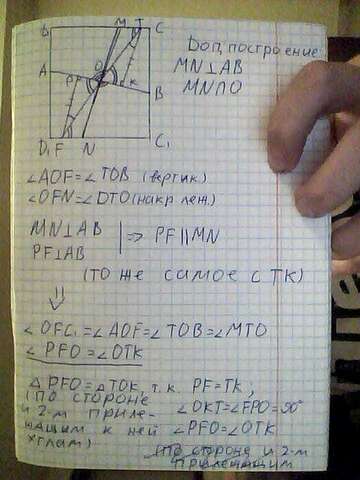 D M T C
Доп, построение
MN⊥AB
MN∩O
A O
P K
B
D₁ F N C₁
∠AOF=∠TOB (вертик)
∠OFN=∠DTO (накр леж.)
MN⊥AB
PF⊥AB
=> PF||MN
(то же самое с TK)
⇓
∠OFC₁=∠AOF=∠TOB=∠MTO
∠PFO=∠OTK
△PFO=△TOK, т.к. PF=TK,
(по стороне
и 2-м приле-
жащим к ней
углам)
∠OKT=∠FPO=90°
∠PFO=∠OTK
(по стороне и 2-м
прилежащим